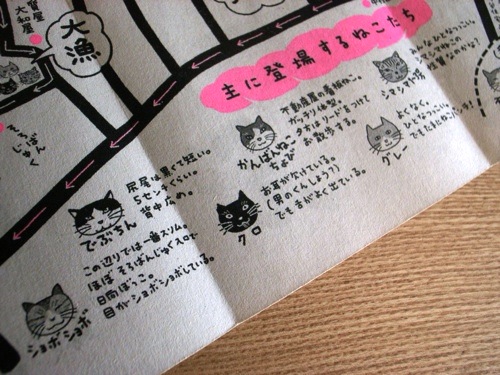 質屋
大和屋
大漁
そろばん
じゅく
主に登場するねこたち
不動産屋の看板ねこ。
ガッチリ体型。
夕方はリードをつけて
お散歩する。
かんばんねこ
ちょび
シマシマ
よくなく。
ひとなつっこい。
グレー
お耳がかけている。
(男のくんしょう?)
でも舌がよく出ている。
クロ
尻尾は黒くて短い。
5センチくらい。
背中広め。
でぶちん
この辺りでは一番スリム。
ほぼそろばんじゅく入口で
日向ぼっこ。
目がショボショボしている。
ショボショボ